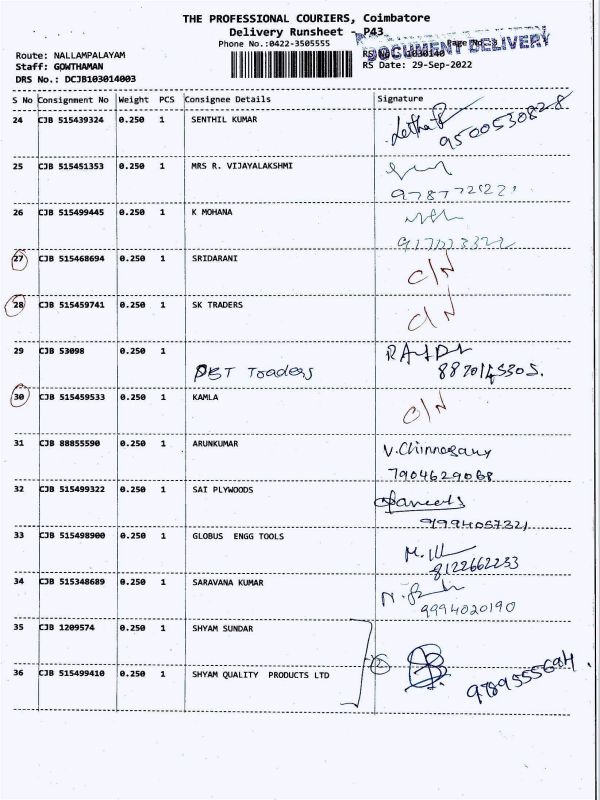 THE PROFESSIONAL COURIERS, Coimbatore
Delivery Runsheet - P43
Phone No.:0422-3505555
DOCUMENT DELIVERY
Route: NALLAMPALAYAM
Staff: GOWTHAMAN
RS No.: 1030140
DRS No.: DCJB103014003
RS Date: 29-Sep-2022
S No Consignment No Weight PCS Consignee Details Signature
24 CJB 515439324 0.250 1 SENTHIL KUMAR
9500530828
25 CJB 515451353 0.250 1 MRS R. VIJAYALAKSHMI
26 CJB 515499445 0.250 1 K MOHANA
27 CJB 515468694 0.250 1 SRIDARANI C/N
28 CJB 515459741 0.250 1 SK TRADERS C/N
29 CJB 53098 0.250 1
PBT Traders
30 CJB 515459533 0.250 1 KAMLA C/N
31 CJB 88855590 0.250 1 ARUNKUMAR V.Chinnasamy
7904629068
32 CJB 515499322 0.250 1 SAI PLYWOODS
9994057321
33 CJB 515498900 0.250 1 GLOBUS ENGG TOOLS
8122662233
34 CJB 515348689 0.250 1 SARAVANA KUMAR
9994020190
35 CJB 1209574 0.250 1 SHYAM SUNDAR
2
36 CJB 515499410 0.250 1 SHYAM QUALITY PRODUCTS LTD
9789555684